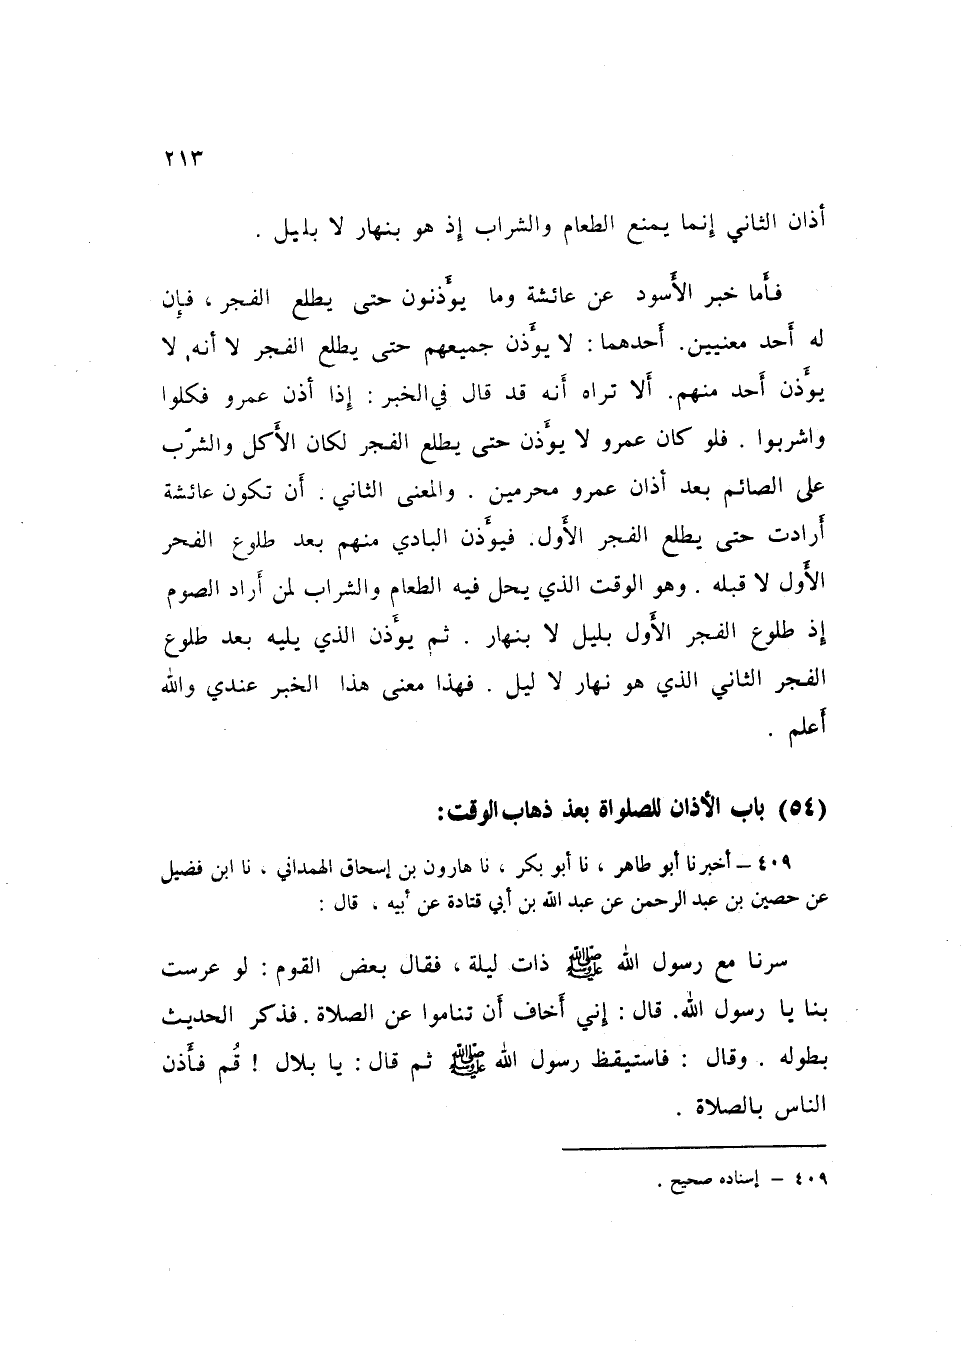 ٢١٣
أذان الثاني إنما يمنع الطعام والشراب إذ هو بنهار لا بليل .
فأما خبر الأسود عن عائشة وما يؤذنون حتى يطلع الفجر ، فإن
له أحد معنيين. أحدهما : لا يؤذن جميعهم حتى يطلع الفجر لا أنه لا
يؤذن أحد منهم. ألا تراه أنه قد قال في الخبر : إذا أذن عمرو فكلوا
واشربوا . فلو كان عمرو لا يؤذن حتى يطلع الفجر لكان الأكل والشرب
على الصائم بعد أذان عمرو محرمين . والمعنى الثاني . أن تكون عائشة
أرادت حتى يطلع الفجر الأول. فيؤذن البادي منهم بعد طلوع الفجر
الأول لا قبله . وهو الوقت الذي يحل فيه الطعام والشراب لمن أراد الصوم
إذ طلوع الفجر الأول بليل لا بنهار . ثم يؤذن الذي يليه بعد طلوع
الفجر الثاني الذي هو نهار لا ليل . فهذا معنى هذا الخبر عندي والله
أعلم .
(٥٤) باب الأذان للصلواة بعذ ذهاب الوقت :
٤٠٩ – أخبرنا أبو طاهر ، نا أبو بكر ، نا هارون بن إسحاق الهمداني ، نا ابن فضيل
عن حصين بن عبد الرحمن عن عبد الله بن أبي قتادة عن أبيه ، قال :
سرنا مع رسول الله ﷺ ذات ليلة ، فقال بعض القوم : لو عرست
بنا يا رسول الله. قال : إني أخاف أن تناموا عن الصلاة . فذكر الحديث
بطوله . وقال : فاستيقظ رسول الله ﷺ ثم قال : يا بلال ! قُم فأذن
الناس بالصلاة .
٤٠٩ – إسناده صحيح .